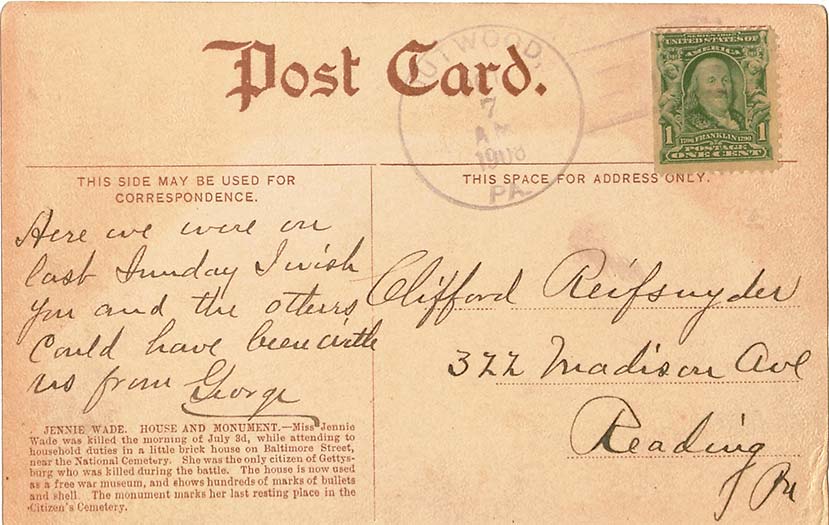 Post Card.
UTWOOD,
7
AM
1908
PA.
SERIES 1902
UNITED STATES OF
AMERICA
1706 FRANKLIN 1790
1 POSTAGE 1
ONE CENT
THIS SIDE MAY BE USED FOR
CORRESPONDENCE.
THIS SPACE FOR ADDRESS ONLY.
Here we were on
last Sunday I wish
you and the others
Could have been with
us from George
JENNIE WADE. HOUSE AND MONUMENT.—Miss Jennie
Wade was killed the morning of July 3d, while attending to
household duties in a little brick house on Baltimore Street,
near the National Cemetery. She was the only citizen of Gettys-
burg who was killed during the battle. The house is now used
as a free war museum, and shows hundreds of marks of bullets
and shell. The monument marks her last resting place in the
Citizen's Cemetery.
Clifford Reifsnyder
322 Madison Ave
Reading
Pa